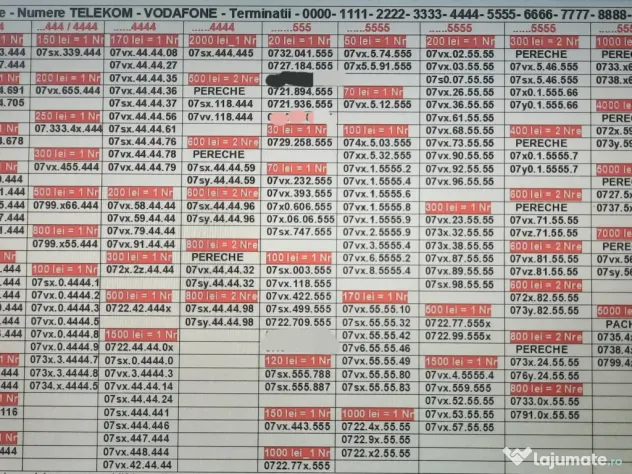 e - Numere TELEKOM - VODAFONE - Terminatii - 0000- 1111- 2222- 3333- 4444- 5555- 6666- 7777- 8888-
4444
1 Nr
3.444
1 Nr
4.691
4.705
1 Nr
4.678
1 Nr
1.444
1 Nr
.444
4.444
1 Nr
116
1 Nr
...444 / 4444
150 lei = 1 Nr
07sx.339.444
200 lei = 1 Nr
07vx.655.444
250 lei = 1 Nr
07.333.4x.444
300 lei = 1 Nr
07vx.455.444
500 lei = 1 Nr
0799.x66.444
800 lei = 1 Nr
0799.x55.444
100 lei = 1 Nr
07sx.0.4444.1
07vx.0.4444.2
07vx.0.4444.3
07vx.0.4444.5
07vx.0.4444.8
07vx.0.4444.9
073x.3.4444.7
073x.3.4444.8
0734.x.4444.5
....4444
170 lei = 1 Nr
07vx.44.44.08
07vx.44.44.27
07vx.44.44.35
07vx.44.44.36
07vx.44.44.37
07vx.44.44.56
07sx.44.44.61
07vx.44.44.76
07vx.44.44.78
07vx.44.44.79
200 lei = 1 Nr
07vx.58.44.44
07vx.59.44.44
07vx.79.44.44
07vx.91.44.44
300 lei = 1 Nr
072x.2z.44.44
500 lei = 1 Nr
0722.42.444x
1500 lei = 1 Nr
0722.44.44.0x
07sx.0.4444.0
07vx.3.4444.3
07vx.44.44.14
07sx.44.44.24
07sx.444.441
07sx.444.446
07sx.447.444
07vx.448.444
07vx.42.44.44
....4444
2000 lei_1 Nr
07sx.444.445
500 lei = 2 Nre
PERECHE
07sx.118.444
07vv.118.444
600 lei = 2 Nre
PERECHE
07sx.44.44.59
07sy.44.44.59
600 lei = 2 Nre
07sx.44.44.96
07sy.44.44.96
800 lei = 2 Nre
PERECHE
07vx.44.44.32
07sy.44.44.32
800 lei = 2 Nre
07sx.44.44.98
07sy.44.44.98
......555
20 lei = 1 Nr
0732.041.555
0727.184.555
0721.894.555
0721.936.555
30 lei = 1 Nr
0729.258.555
70 lei = 1 Nr
07vx.232.555
07vx.393.555
07x0.606.555
07x.06.06.555
07sx.747.555
100 lei = 1 Nr
07sx.003.555
07vx.118.555
07vx.422.555
07sx.499.555
0722.709.555
120 lei = 1 Nr
07sx.555.788
07sx.555.887
150 lei = 1 Nr
07vx.443.555
1000 lei_1 Nr
0722.77x.555
.....5555
50 lei = 1 Nr
07vx.5.74.555
07x5.5.91.555
70 lei = 1 Nr
07vx.5.12.555
100 lei = 1 Nr
074x.5.03.555
07xx.5.32.555
07vx.1.5555.2
07vx.1.5555.4
07vx.1.5555.6
07vx.1.5555.8
07vx.1.5555.9
07vx.2.5555.9
07vx.3.5555.4
07vx.6.5555.2
07vx.8.5555.4
170 lei = 1 Nr
07vx.55.55.10
07sx.55.55.32
07vx.55.55.42
07v6.55.55.46
07vx.55.55.49
07vx.55.55.80
07sx.55.55.83
1000 lei = 1 Nr
0722.4x.55.55
0722.9x.55.55
0722.x2.55.55
.....5555
200 lei = 1 Nr
07vx.02.55.55
07vx.03.55.55
07s0.07.55.55
07vx.26.55.55
07vx.35.55.55
07vx.61.55.55
07vx.68.55.55
07vx.73.55.55
07vx.90.55.55
07vx.92.55.55
07vx.96.55.55
300 lei = 1 Nr
07vx.23.55.55
073x.32.55.55
073x.38.55.55
07vx.87.55.55
07vx.89.55.55
07sx.98.55.55
500 lei = 1 Nr
0722.77.555x
0722.99.555x
1500 lei = 1 Nr
07vx.4.5555.4
07vx.559.555
07vx.52.55.55
07vx.53.55.55
07vx.57.55.55
.....5555
300 lei = 2 Nre
PERECHE
07vx.5.46.555
07sx.5.46.555
07x0.1.555.66
07y0.1.555.66
400 lei = 2 Nre
PERECHE
07x0.1.5555.7
07y0.1.5555.7
600 lei = 2 Nre
PERECHE
07vx.71.55.55
07vz.71.55.55
600 lei = 2 Nre
07vx.81.55.55
07vz.81.55.55
600 lei = 2 Nre
072x.82.55.55
073y.82.55.55
800 lei = 2 Nre
PERECHE
073x.24.55.55
076y.24.55.55
800 lei = 2 Nre
0733.0x.55.55
0791.0x.55.55
1000 lei
PERE
0733.x6
0738.x6
4000 lei
072x.59
073y.59
5000
0727.5x
0737.5x
7000 lei
07vx.56
07sy.56
5000 lei
PACH
0735.4x
0738.4x
0799.4x
lajumate.ro